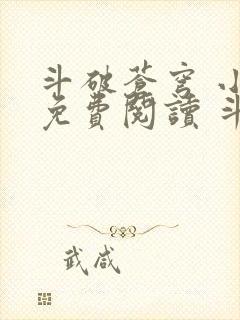 斗破苍穹 小
免費閱讀 斗
武咸